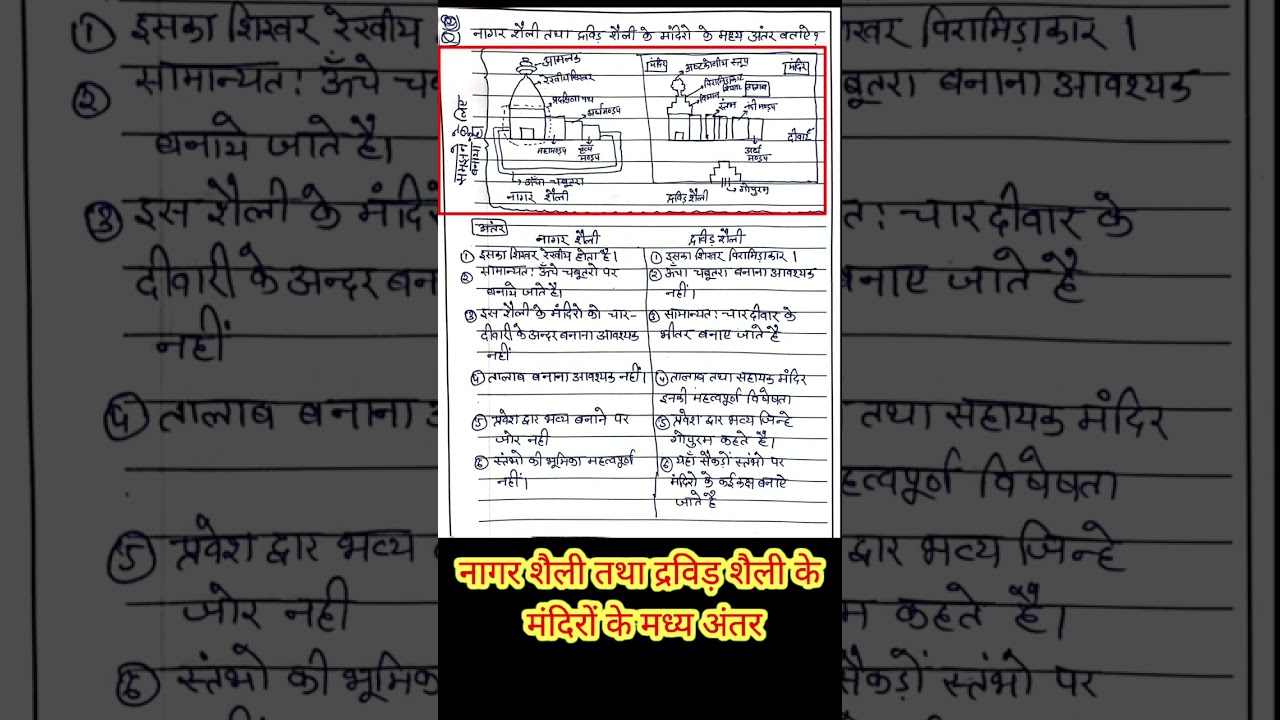 नागर शैली तथा द्रविड़ शैली के मंदिरो के मध्य अंतर बताऐ?
आमलक
रेखीय शिखर
प्रदक्षिणा पथ
अर्धमण्डप
महामण्डप
ऊँचा-चबूतरा
नागर शैली
मंदिर
अष्टकोणीय स्तूप
मंदिर
पिरामिडाकार
विमान
तालाब
स्तम्भ
नंदी मण्डप
दीवारें
अर्धा मण्डप
गोपुरम
द्रविड़ शैली
अंतर
नागर शैली
① इसका शिखर रेखीय होता है।
② सामान्यत: ऊँचे चबूतरो पर
बनाये जाते है।
③ इस शैली के मंदिरो को चार-
दीवारी के अन्दर बनाना आवश्यक
नहीं
④ तालाब बनाना आवश्यक नहीं।
⑤ प्रवेश द्वार भव्य बनाने पर
जोर नही
⑥ स्तंभो की भूमिका महत्वपूर्ण
नहीं।
द्रविड़ शैली
① इसका शिखर पिरामिडाकार।
② ऊँचा चबूतरा बनाना आवश्यक
नहीं।
③ सामान्यत: चार दीवार के
भीतर बनाए जाते है
④ तालाब तथा सहायक मंदिर
इनकी महत्वपूर्ण विषेषता
⑤ प्रवेश द्वार भव्य जिन्हे
गोपुरम कहते है।
⑥ यहाँ सैकड़ों स्तंभो पर
मंदिरो के कई कक्ष बनाऐ
जाते है
नागर शैली तथा द्रविड़ शैली के
मंदिरों के मध्य अंतर